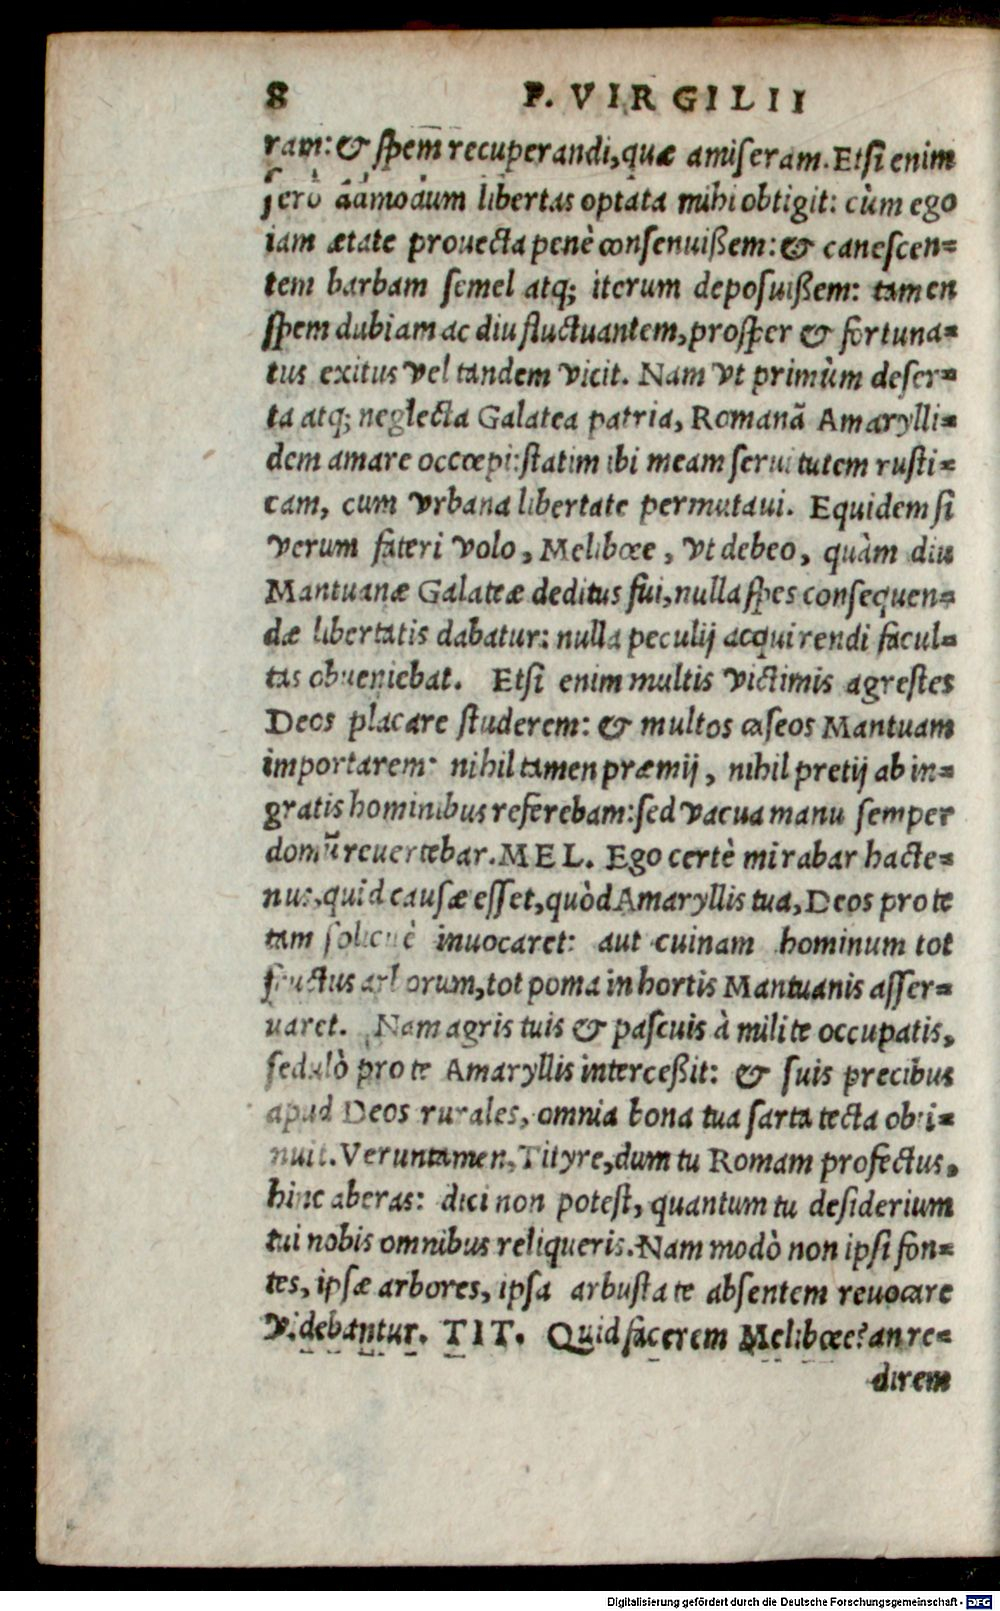 8 P. VIRGILII
ram: & spem recuperandi, quæ amiseram. Etsi enim
serò admodum libertas optata mihi obtigit: cùm ego
iam ætate prouecta penè consenuißem: & canescen=
tem barbam semel atq; iterum deposuißem: tamen
spem dubiam ac diu fluctuantem, prosper & fortuna=
tus exitus vel tandem vicit. Nam vt primùm deser=
ta atq; neglecta Galatea patria, Romanã Amarylli=
dem amare occœpi: statim ibi meam seruitutem rusti=
cam, cum vrbana libertate permutaui. Equidem si
verum fateri volo, Melibœe, vt debeo, quàm diu
Mantuanæ Galateæ deditus fui, nulla spes consequen=
dæ libertatis dabatur: nulla peculij acquirendi facul=
tas obueniebat. Etsi enim multis victimis agrestes
Deos placare studerem: & multos caseos Mantuam
importarem: nihil tamen præmij, nihil pretij ab in=
gratis hominibus referebam: sed vacua manu semper
domũ reuertebar. MEL. Ego certè mirabar hacte=
nus, quid causæ esset, quòd Amaryllis tua, Deos pro te
tam solicitè inuocaret: aut cuinam hominum tot
fructus arborum, tot poma in hortis Mantuanis asser=
uaret. Nam agris tuis & pascuis à milite occupatis,
sedulò pro te Amaryllis interceßit: & suis precibus
apud Deos rurales, omnia bona tua sarta tecta obti=
nuit. Veruntamen, Tityre, dum tu Romam profectus,
hinc aberas: dici non potest, quantum tu desiderium
tui nobis omnibus reliqueris. Nam modò non ipsi fon=
tes, ipsæ arbores, ipsa arbusta te absentem reuocare
videbantur. TIT. Quid facerem Melibœe? an re=
direm
Digitalisierung gefördert durch die Deutsche Forschungsgemeinschaft - DFG